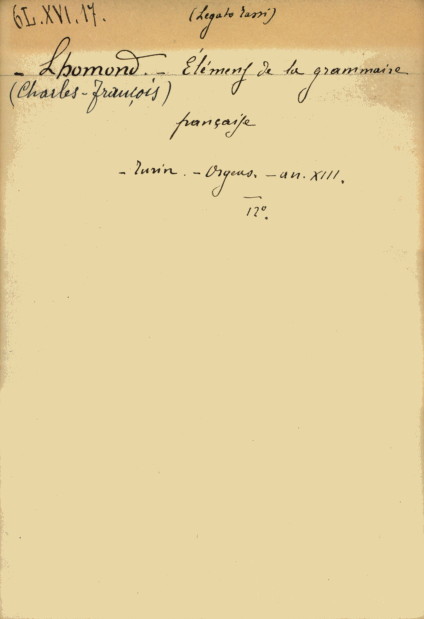 6L.XVI.17. (Legato Tassi)
- Lhomond. - Élémens de la grammaire
(Charles-François)
française
- Turin. - Orgeas. - an. XIII.
12º.